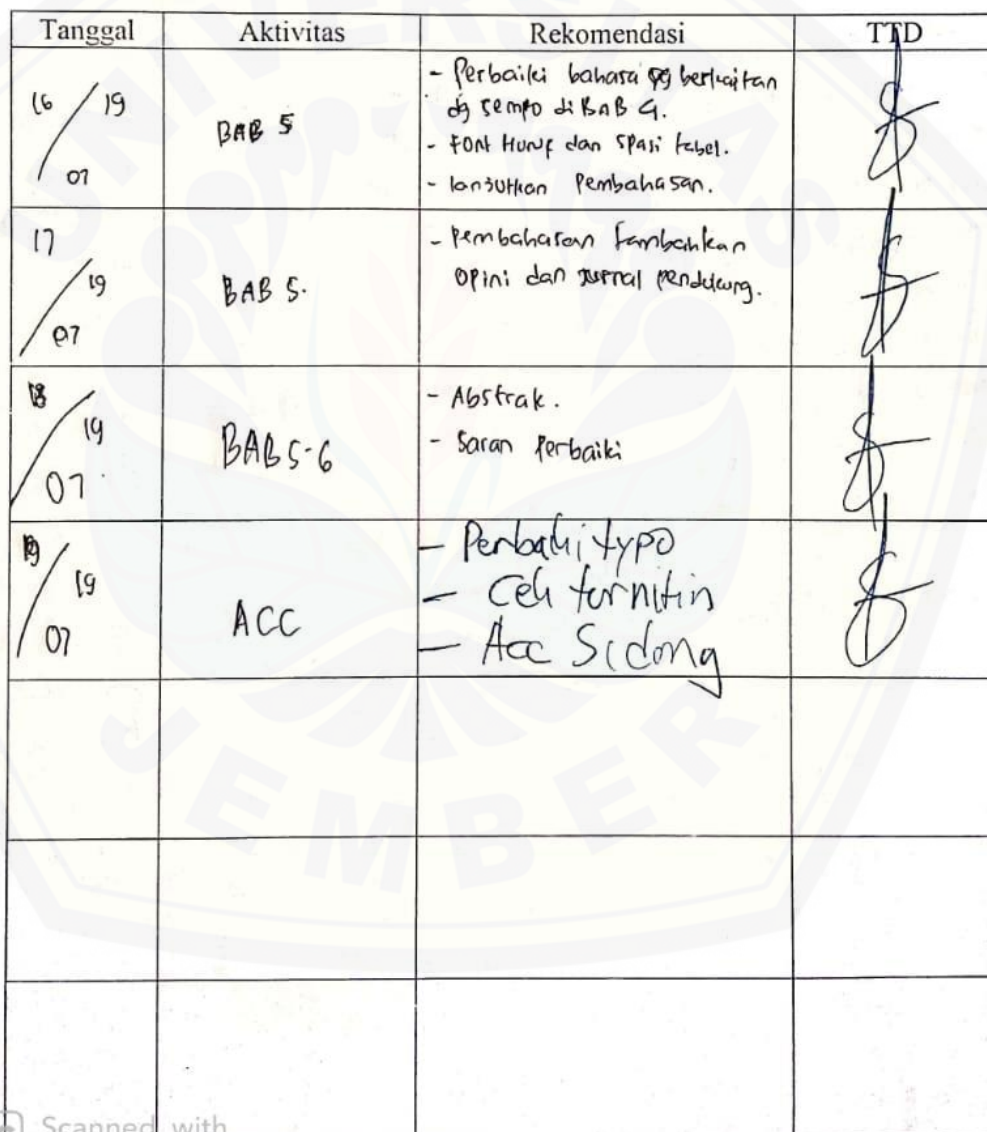 Tanggal Aktivitas Rekomendasi TTD
16/07 19 BAB 5 - Perbaiki bahasa yg berkaitan
dg sempo di BAB 4.
- FONT Huruf dan spasi tabel.
- lanjutkan Pembahasan.
17/07 19 BAB 5. - Pembahasan tambahkan
opini dan jurnal pendukung.
18/07 19 BAB 5-6 - Abstrak.
- Saran Perbaiki
19/07 19 ACC - Perbaiki typo
- Cek turnitin
- Acc Sidang
UNIVERSITAS
JEMBER
Scanned with